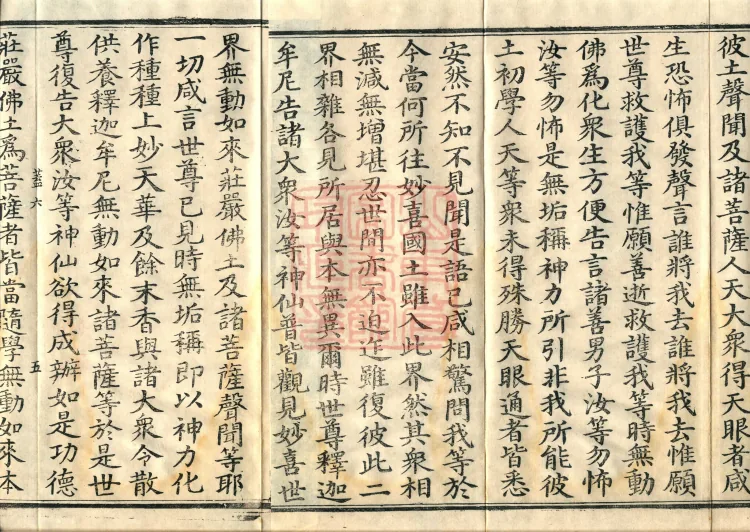 彼土聲聞及諸菩薩人天大衆得天眼者咸
生恐怖俱發聲言誰將我去誰將我去惟願
世尊救護我等惟願善逝救護我等時無動
佛爲化衆生方便告言諸善男子汝等勿怖
汝等勿怖是無垢稱神力所引非我所能彼
土初學人天等衆未得殊勝天眼通者皆悉
安然不知不見聞是語已咸相驚問我等於
今當何所往妙喜國土雖入此界然其衆相
無減無增堪忍世間亦不迫迮雖復彼此二
界相雜各見所居與本無異爾時世尊釋迦
牟尼告諸大衆汝等神仙普皆觀見妙喜世
界無動如來莊嚴佛土及諸菩薩聲聞等耶
一切咸言世尊已見時無垢稱即以神力化
作種種上妙天華及餘末香與諸大衆令散
供養釋迦牟尼無動如來諸菩薩等於是世
尊復告大衆汝等神仙欲得成辦如是功德
蓋六 五
莊嚴佛土爲菩薩者皆當隨學無動如來本